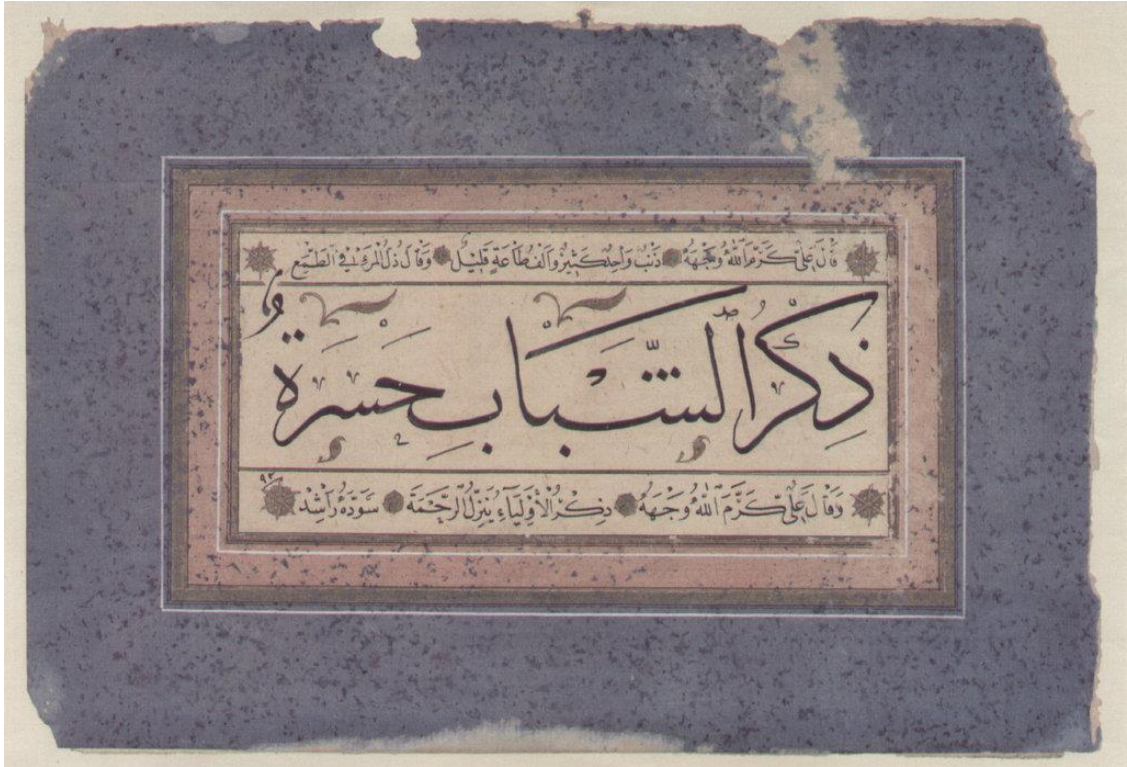 قَالَ عَلِيّ كَرَّمَ اللّٰهُ وَجْهَهُ ذَنْبٌ وَاحِدٌ كَثِيرٌ وَاَلْفُ طَاعَةٍ قَلِيلٌ وَقَالَ ذُلُّ الْمَرْءِ فِي الطَّمَعِ
ذِكْرُ الشَّبَابِ حَسْرَةٌ
وَقَالَ عَلِيّ كَرَّمَ اللّٰهُ وَجْهَهُ ذِكْرُ الْاَوْلِيَاءِ يُنَزِّلُ الرَّحْمَةَ سَوَّدَهُ رَاشِدْ